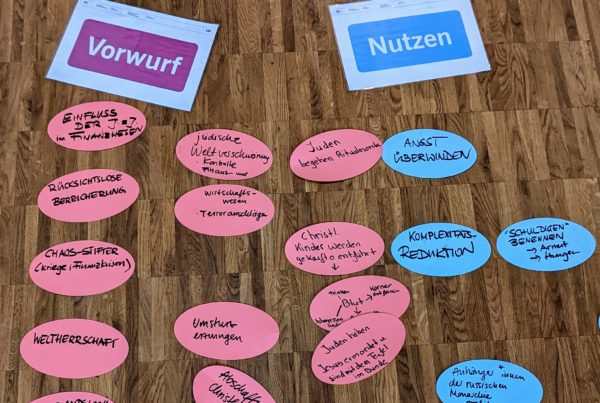 Vorwurf
Nutzen
EINFLUSS
DER J*J
im FINANZWESEN
RÜCKSICHTSLOSE
BEREICHERUNG
CHAOS-STIFTER
(Kriege, Finanzkrisen)
WELTHERRSCHAFT
Jüdische
Weltverschwörung
Kontrolle
Finanz- und
Wirtschafts-
wesen
Terroranschläge
Umsturz-
Abschaffung
Juden
begehen Ritualmorde
Christl.
Kinder werden
gekauft o entführt
trinken
Blut
Hörner
Juden haben
Jesus ermordet u.
sind mit dem Teufel
im Bunde
ANGST
ÜBERWINDEN
KOMPLEXITÄTS-
REDUKTION
"SCHULDIGEN"
BENENNEN
→ Armut
→ Hunger
Anhänger*innen
der russischen
Monarchie